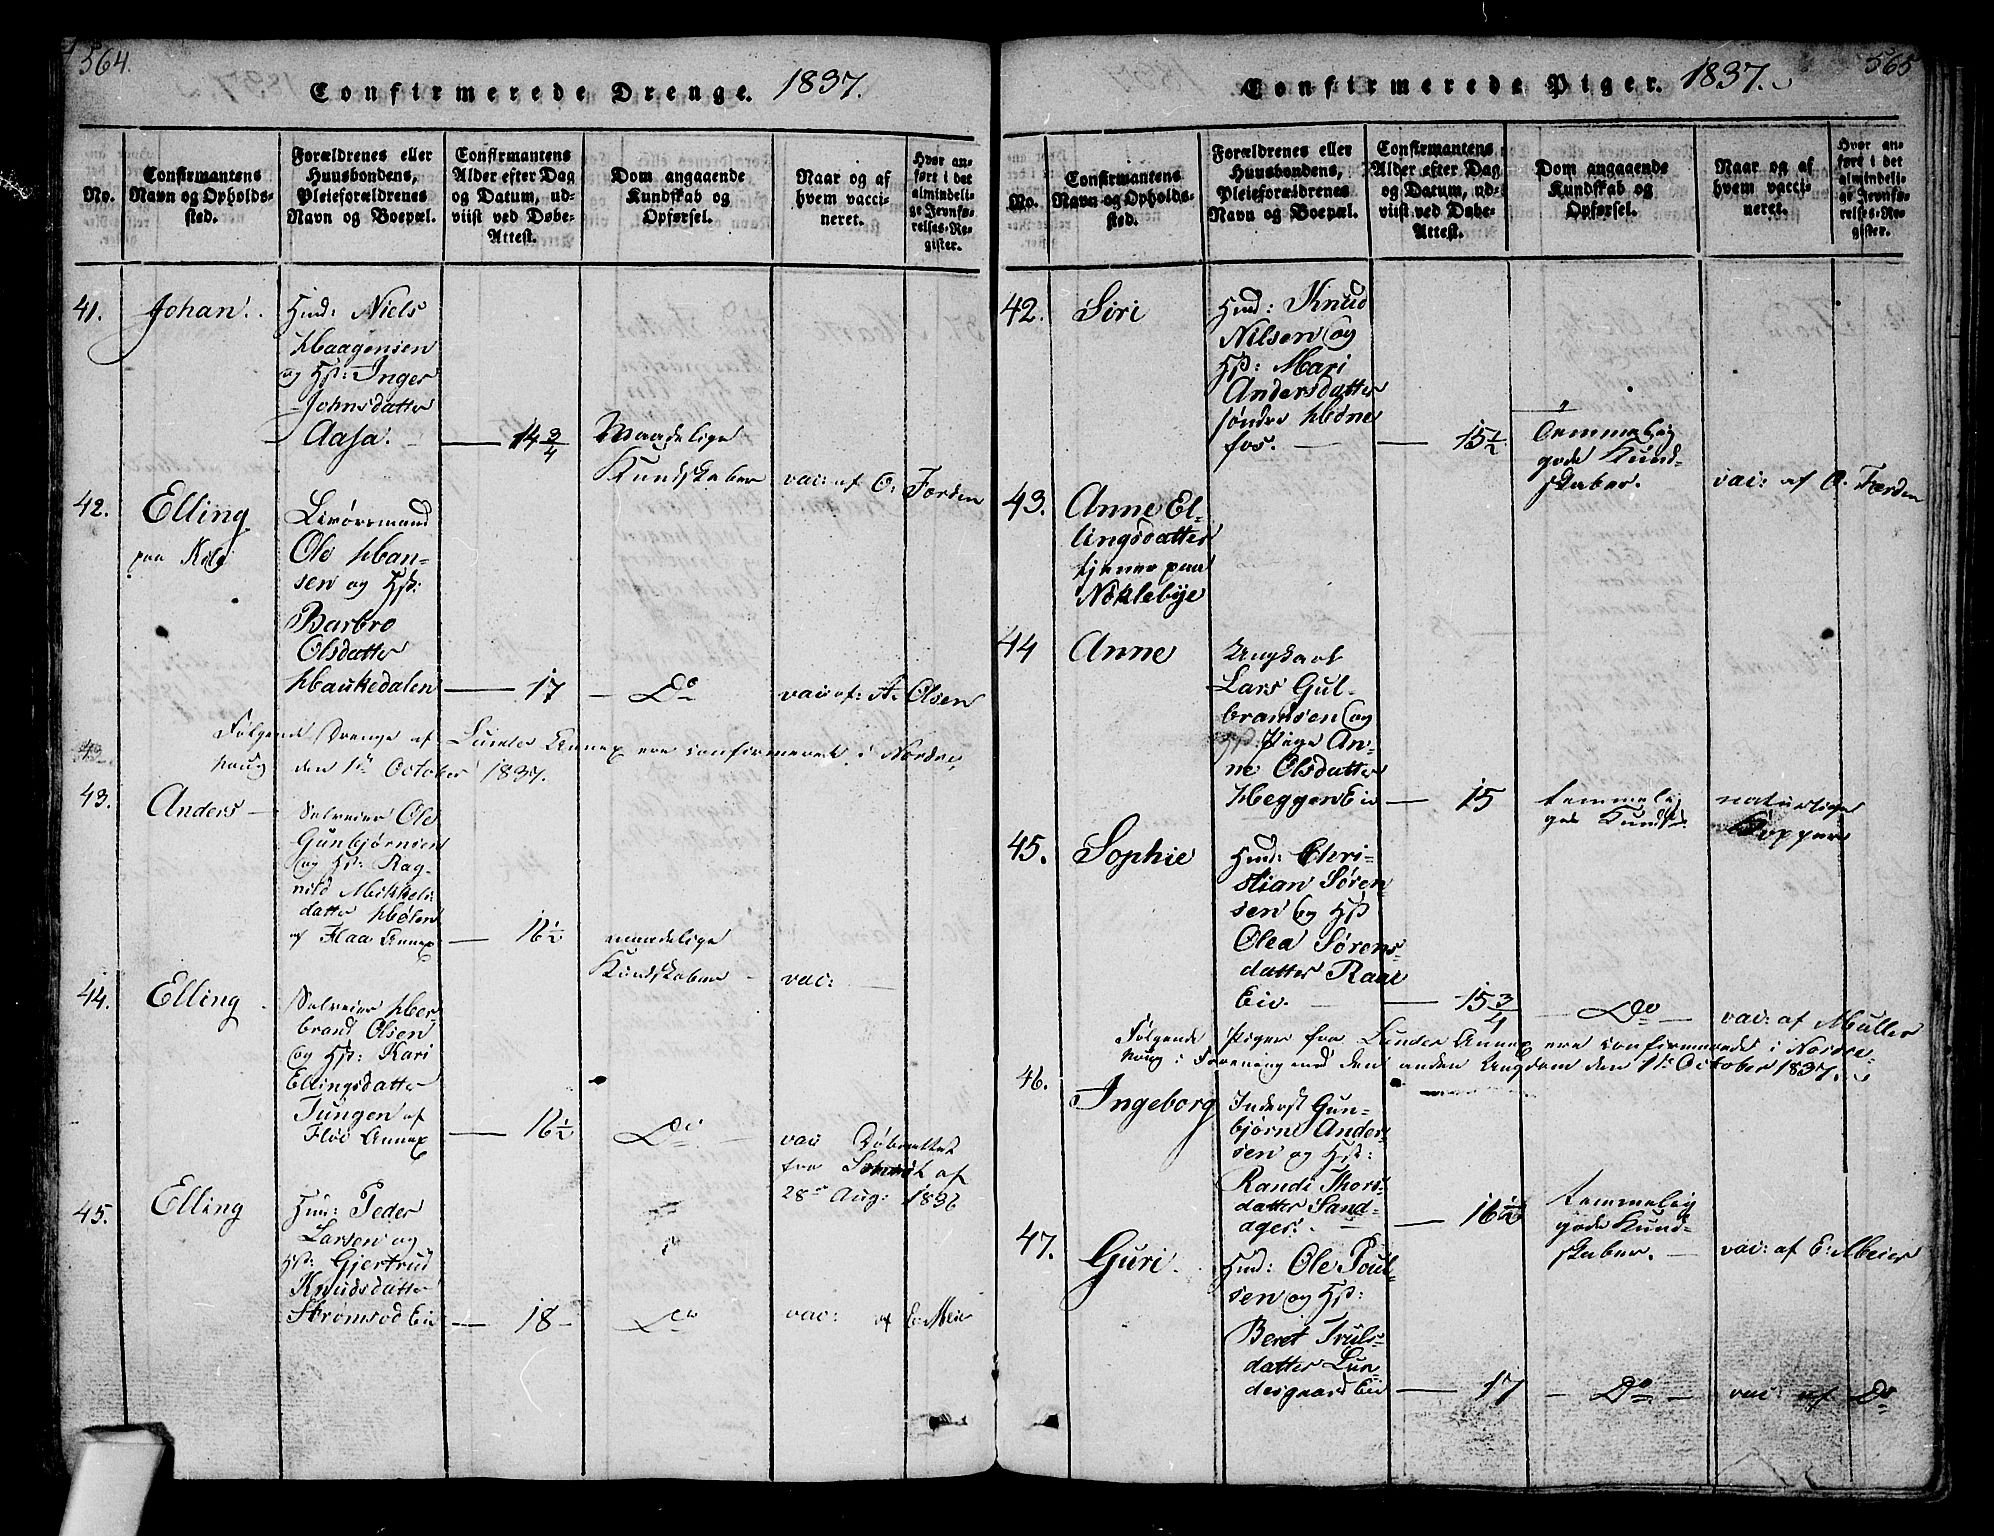 564.
Confirmerede Drenge. 1837.
No.
Confirmantens
Navn og Opholds-
sted.
Forældrenes eller
Huusbondens,
Pleieforældrenes
Navn og Boepæl.
Confirmantens
Alder efter Dag
og Datum, ud-
viist ved Døbe-
Attest.
Dom angaaende
Kundskab og
Opførsel.
Naar og af
hvem vacci-
neret.
Hvor an-
ført i det
almindeli-
ge Jevnfø-
relses-Re-
gister.
41. Johan.
Hmd: Niels
Haagensen
og Hst: Inger
Johnsdatter
Aasa. 14 3/4
Maadelige
Kundskaber vac: af O: Færden
42. Elling
paa
Ole Han-
sen og Hst:
Barbro
Olsdatter
Haukedalen 17 Do vac: af: A: Olsen
Følgende Drenge af Lunder Annex ere confirmerede i Nordre
houg den 1te October 1837.
43. Anders
Selveier Ole
Gunbjørnsen
og Hst: Rag-
nild Mikkels
datter Hølen
af Flaa Annex 16 1/2
maadelige
Kundskaber vac:
44. Elling
Selveier Her-
brand Olsen
og Hst: Kari
Ellingsdatter
Tungen af
Annex 16 1/2 Do vac
fra af
28de Aug: 1836
45. Elling
Hmd: Peder
Larsen og
Hst: Gjertrud
Knudsdatter
Strømsod Eie 18 Do vac: af E. Meier
565
Confirmerede Piger. 1837.
No.
Confirmantens
Navn og Opholds-
sted.
Forældrenes eller
Huusbondens,
Pleieforældrenes
Navn og Boepæl.
Confirmantens
Alder efter Dag
og Datum, ud-
viist ved Døbe-
Attest.
Dom angaaende
Kundskab og
Opførsel.
Naar og af
hvem vacci-
neret.
Hvor an-
ført i det
almindeli-
ge Jevnfø-
relses-Re-
gister.
42. Siri
Hmd: Knud
Nilsen og
Hst: Mari
Andersdatter
søndre Høne
fos. 15 1/2
Temmelig
gode Kund-
skaber. vac: af O. Færden
43. Anne El-
lingsdatter
tjener paa
Noklebye
44 Anne
Ungkarl
Lars Gul-
brandsen og
Pige An-
ne Olsdatter
Heggen Eie 15
temmelig
gode Kundsk:
naturlige
Kopper
45. Sophie
Hmd: Chri-
stian Søren
sen og Hst
Olea Sørens-
datter Raae
Eie. 15 3/4 Do vac: af Muller
Følgende Piger fra Lunder Annex ere confirmerede i Nordre-
houg i Forening med den anden Ungdom den 1te October 1837.
46. Ingeborg
Inderst Gun-
bjørn Ander-
sen og Hst:
Randi Thors
datter Sand-
ager. 16 1/2
temmelig
gode Kund-
skaber. vac: af E: Meier
47. Guri.
Hmd: Ole Poul-
sen og Hst:
Beret Truls-
datter Lun
desgaard Eie 17 Do vac: af Do